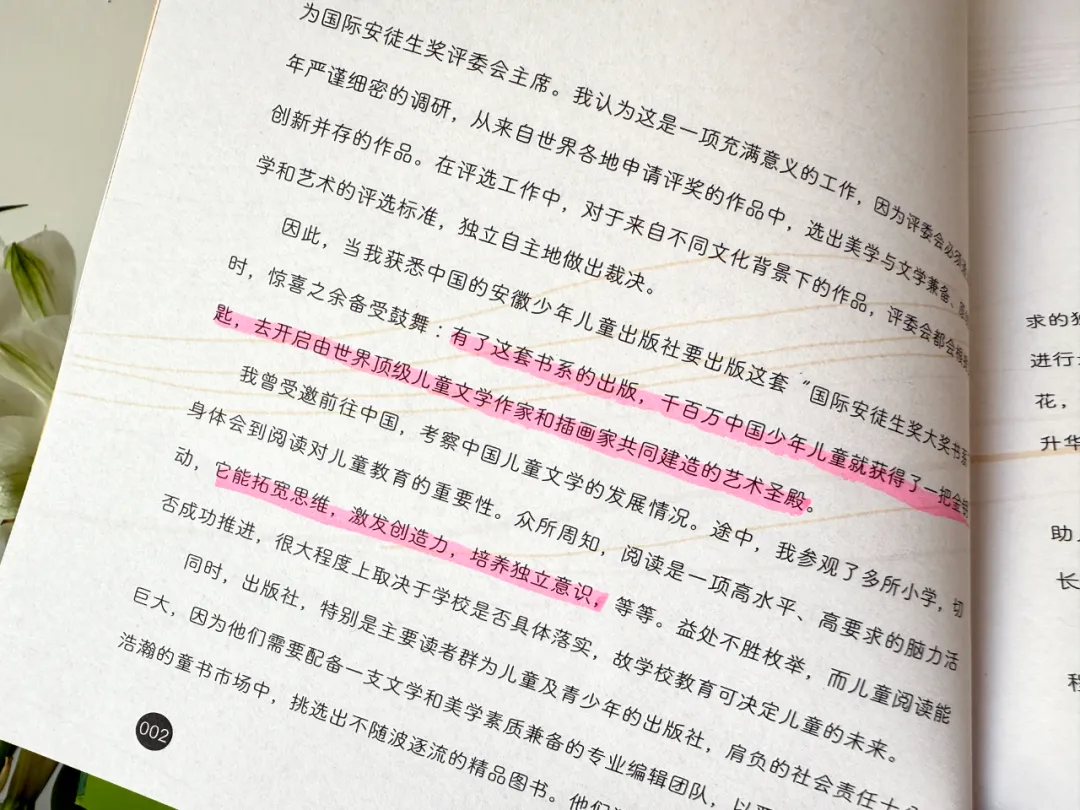 为国际安徒生奖评委会主席。我认为这是一项充满意义的工作，因为评委会必须
年严谨细密的调研，从来自世界各地申请评奖的作品中，选出美学与文学兼备、
创新并存的作品。在评选工作中，对于来自不同文化背景下的作品，评委会都会
学和艺术的评选标准，独立自主地做出裁决。
因此，当我获悉中国的安徽少年儿童出版社要出版这套“国际安徒生奖大奖书系
时，惊喜之余备受鼓舞：有了这套书系的出版，千百万中国少年儿童就获得了一把金钥
匙，去开启由世界顶级儿童文学作家和插画家共同建造的艺术圣殿。
我曾受邀前往中国，考察中国儿童文学的发展情况。途中，我参观了多所小学，切
身体会到阅读对儿童教育的重要性。众所周知，阅读是一项高水平、高要求的脑力活
动，它能拓宽思维，激发创造力，培养独立意识，等等。益处不胜枚举，而儿童阅读能
否成功推进，很大程度上取决于学校是否具体落实，故学校教育可决定儿童的未来。
同时，出版社，特别是主要读者群为儿童及青少年的出版社，肩负的社会责任十
巨大，因为他们需要配备一支文学和美学素质兼备的专业编辑团队，以
浩瀚的童书市场中，挑选出不随波逐流的精品图书。他们
002
求的
进行
花，
升华
助
长
程